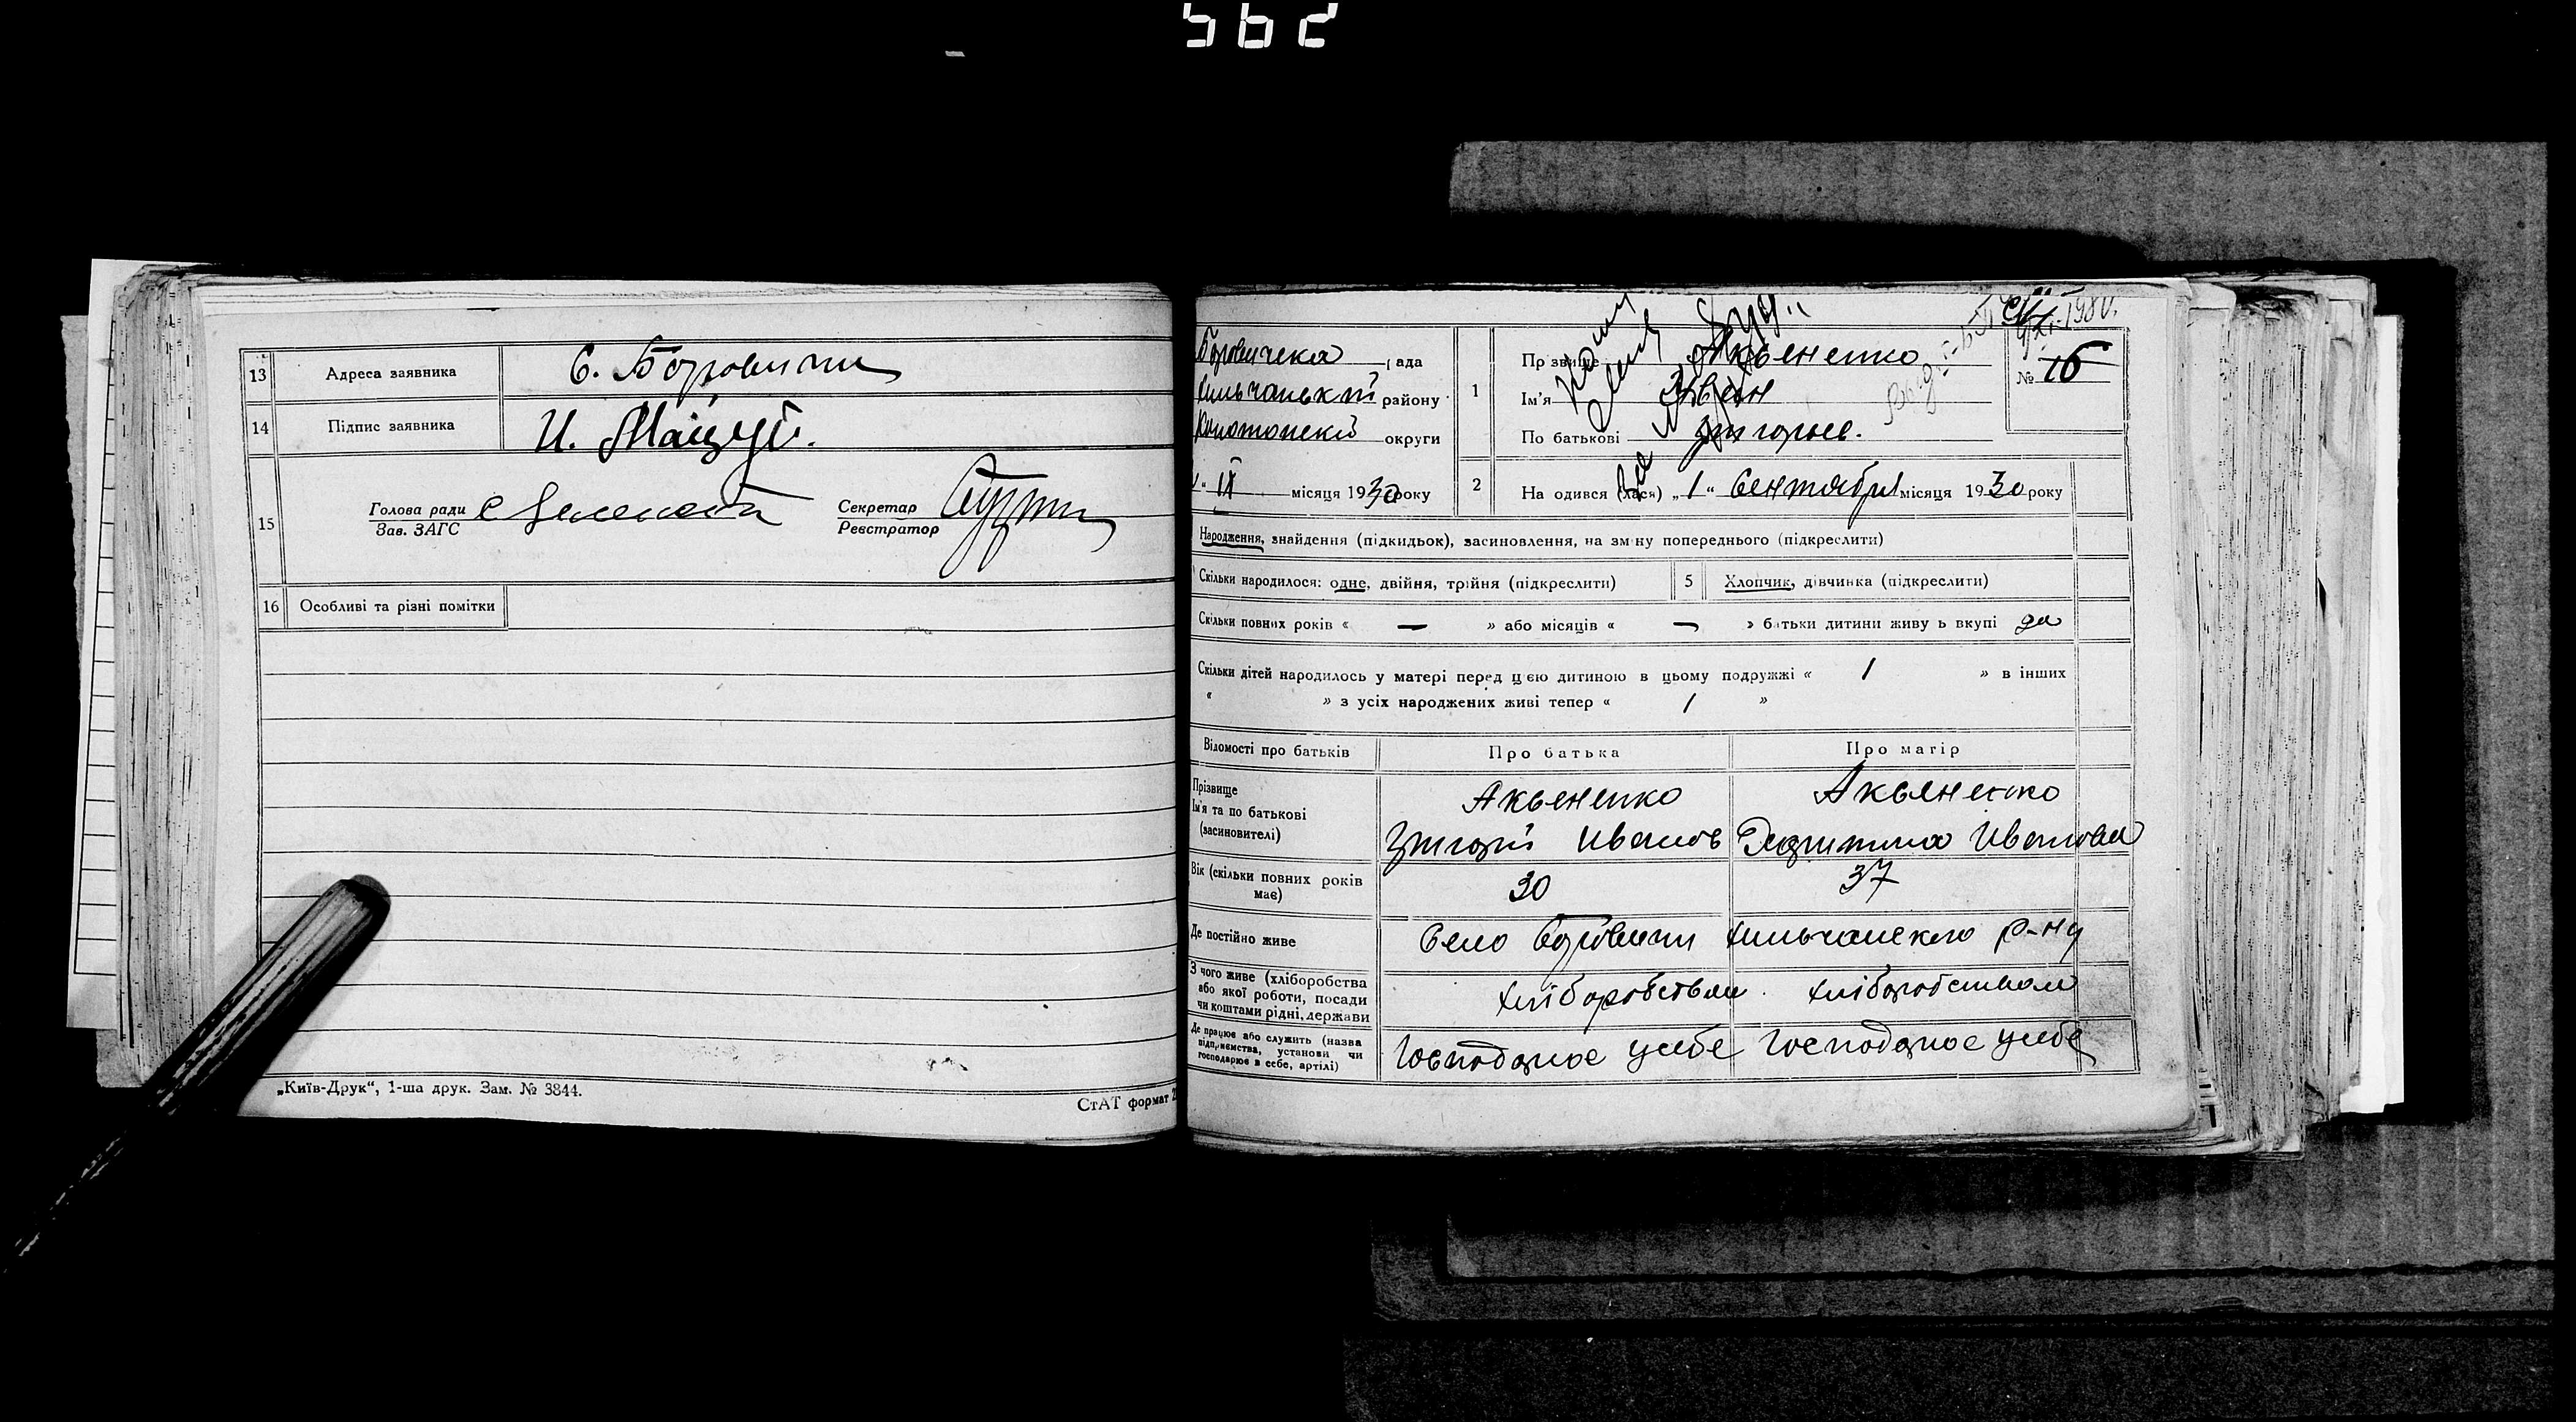 562
13 Адреса заявника С. Боровичи
14 Підпис заявника И. Мацуй.
15 Голова ради
Зав. ЗАГС
Секретар
Реєстратор
16 Особливі та різні помітки
„Київ-Друк“, 1-ша друк. Зам. № 3844.
СтАТ формат
рада
району
округи
„ IX місяця 1930 року
№ 16
1 Прізвище Акьененко
Ім'я Иван
По батькові Григорьев.
2 Народився (лася) „1“ Сентября місяця 1930 року
Народження, знайдення (підкидьок), засиновлення, на зміну попереднього (підкреслити)
Скільки народилося: одне, двійня, трійня (підкреслити) 5 Хлопчик, дівчинка (підкреслити)
Скільки повних років « — » або місяців « — » батьки дитини живуть вкупі да
Скільки дітей народилось у матері перед цією дитиною в цьому подружжі « 1 » в інших
« » з усіх народжених живі тепер « 1 »
Відомості про батьків Про батька Про матір
Прізвище
Ім'я та по батькові
(засиновителі)
Акьененко Акьененко
Григорій Иванов Иванова
Вік (скільки повних років має) 30 37
Де постійно живе Село Боровичи Хильчанского р-ну
З чого живе (хліборобства
або якої роботи, посади
чи коштами рідні, держави
хліборобством хліборобством
Де працює або служить (назва
підприємства, установи чи
господарює в себе, артілі)
Господарює у себе Господарює у себе